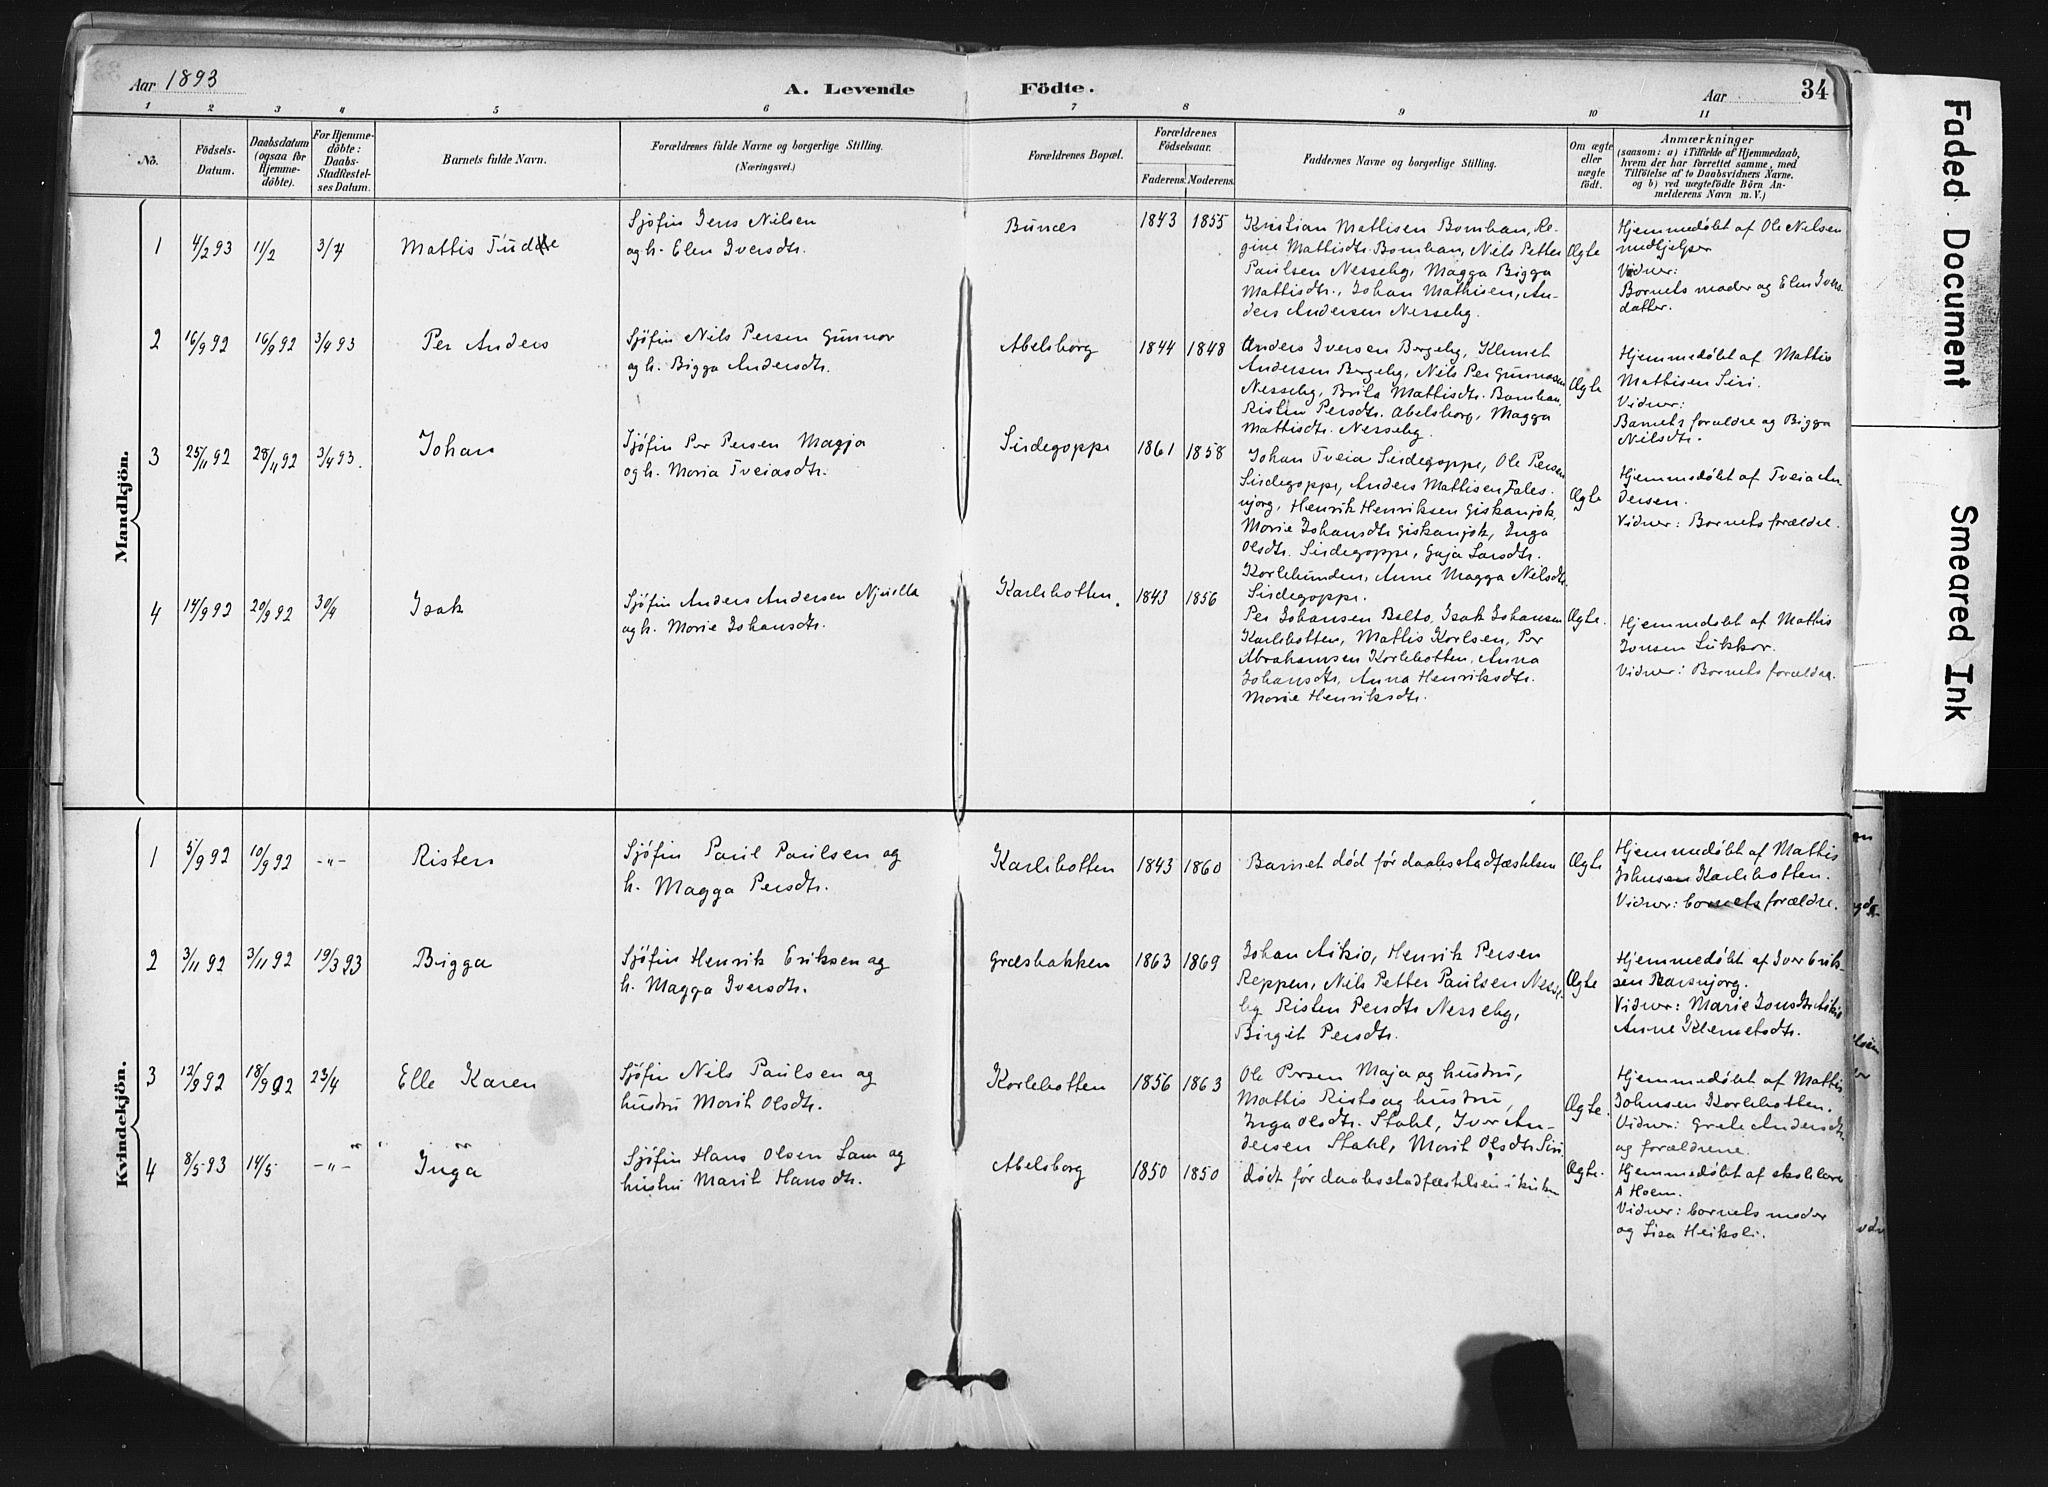 Aar 1893
A. Levende Födte.
Aar
34
1 2 3 4 5 6 7 8 9 10 11
No.
Födsels-Datum.
Daabsdatum (ogsaa for Hjemmedöbte).
For Hjemmedöbte: Daabs-Stadfæstelses Datum.
Barnets fulde Navn.
Forældrenes fulde Navne og borgerlige Stilling.
(Næringsvei.)
Forældrenes Bopæl.
Forældrenes Födselsaar.
Faderens. Moderens.
Faddernes Navne og borgerlige Stilling.
Om ægte eller uægte födt.
Anmærkninger
(saasom: a) i Tilfælde af Hjemmedaab,
hvem der har forrettet samme, med
Tilföielse af to Daabsvidners Navne,
og b) ved uægtefödte Börn An-
melderens Navn m. V.)
Mandkjön.
1 4/2 93 11/2 3/4 Mattis
Sjøfin Jens Nilsen
og h. Elen Iversdtr.
Bunæs 1843 1855
Kristian Mattisen Bomban, Re-
gine Mattisdtr. Bomban, Nils Petter
Paulsen Nesseby, Magga Bigga
Mattisdtr., Johan Mathisen, An-
ders Andersen Nesseby.
Ægte
Hjemmedøbt af Ole Nilsen
medhjelper
Vidner:
Barnets moder og Elen Ivers-
datter.
2 16/9 92 16/9 92 3/4 93 Per Anders
Sjöfin Nils Persen Gunnor
og h. Bigga Andersdtr.
Abelsborg 1844 1848
Anders Iversen Bergeby, Klemet
Andersen Bergeby, Nils Per Gunnasen
Nesseby, Brita Mattisdtr. Bomban,
Risten Persdtr. Abelsborg, Magga
Mattisdtr. Nesseby.
Ægte
Hjemmedøbt af Mattis
Mattisen Siri.
Vidner:
Barnets forældre og Bigga
Nilsdtr.
3 25/11 92 28/11 92 3/4 93. Johan
Sjöfin Per Persen Magja
og h. Maria Tveiasdtr.
Sirdegoppe 1861 1858
Johan Tveia Sirdegoppe, Ole Persen
Sirdegoppe, Anders Mattisen Fales-
njorg, Henrik Henriksen Giskanjok,
Marie Johansdtr Giskanjok, Inga
Olsdtr. Sirdegoppe, Gaja Larsdtr.
Karlebunden, Anne Magga Nilsdtr.
Sirdegoppe.
Ægte
Hjemmedøbt af Tveia An-
dersen.
Vidner: Barnets forældre.
4 14/9 92 20/9 92 30/4 Isak
Sjöfin Anders Andersen Njuella
og h. Marie Johansdtr.
Karlebotten. 1843 1856
Per Johansen Balto, Isak Johansen
Karlebotten, Mattis Karlsen, Per
Abrahamsen Karlebotten, Anna
Johansdtr, Anna Henriksdtr.
Marie Henriksdtr.
Ægte.
Hjemmedøbt af Mattis
Jonsen Lukkar.
Vidner: Barnets forældre.
Kvindekjön.
1 5/9 92 10/9 92 -„- Risten
Sjöfin Paul Paulsen og
h. Magga Persdtr.
Karlebotten 1843 1860
Barnet død før daabsstadfæstelsen
Ægte
Hjemmedøbt af Mattis
Johnsen Karlebotten.
Vidner: barnets forældre.
2 3/11 92 3/11 92 19/3 93 Bigga
Sjöfin Henrik Eriksen og
h. Magga Iversdtr.
Græsbakken 1863 1869
Johan Aikio, Henrik Persen
Reppen, Nils Petter Paulsen Nesse-
by Risten Persdtr Nesseby,
Birgit Persdtr.
Ægte
Hjemmedøbt af Iver Erik-
sen
Vidner: Marie Jonsdtr Aikio
Anne Klemetsdtr.
3 12/9 92 18/9 92 23/4 Elle Karen
Sjöfin Nils Paulsen og
hustru Marit Olsdtr.
Karlebotten 1856 1863
Ole Persen Maja og hustru,
Mattis Risto og hustru,
Inga Olsdtr. Stahl, Iver An-
dersen Stahl, Marit Olsdtr Siri
Ægte.
Hjemmedøbt af Mattis
Johnsen Karlebotten.
Vidner: Grete Andersdtr
og forældrene.
4 8/5 93 14/5 -„- Inga
Sjöfin Hans Olsen Lam og
hustru Marit Hansdtr.
Abelsborg 1850 1850
dødt før daabsstadfæstelsen i kirken
Ægte.
Hjemmedøbt af skolelærer
A Hoem.
Vidner: barnets moder
og Lisa Heikoli.
Faded Document Smeared Ink